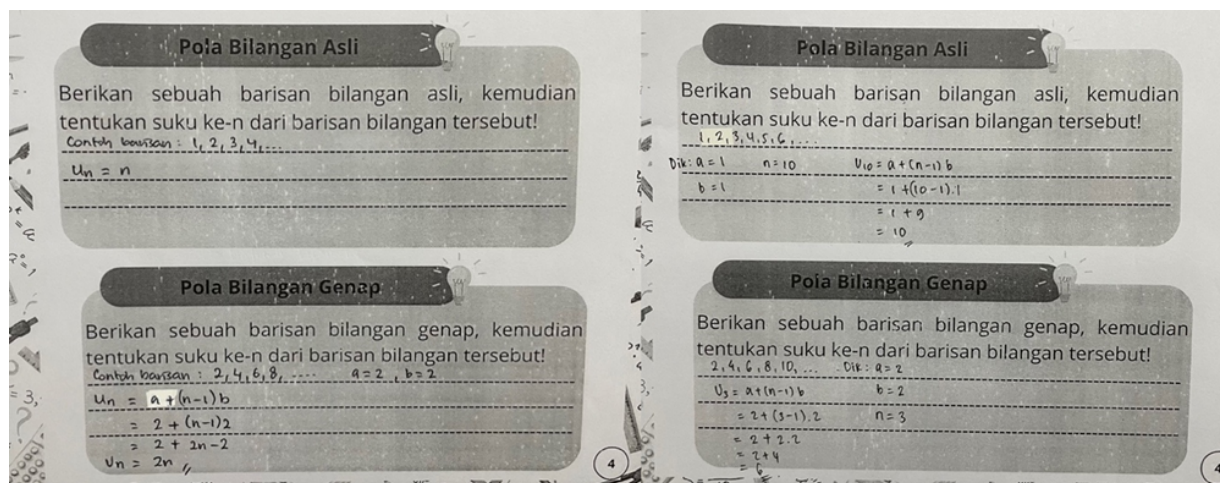 Pola Bilangan Asli
Berikan sebuah barisan bilangan asli, kemudian
tentukan suku ke-n dari barisan bilangan tersebut!
Contoh barisan : 1, 2, 3, 4, ...
Un = n
Pola Bilangan Genap
Berikan sebuah barisan bilangan genap, kemudian
tentukan suku ke-n dari barisan bilangan tersebut!
Contoh barisan : 2, 4, 6, 8, .... a = 2 , b = 2
Un = a + (n-1) b
= 2 + (n-1)2
= 2 + 2n - 2
Un = 2n //
4
Pola Bilangan Asli
Berikan sebuah barisan bilangan asli, kemudian
tentukan suku ke-n dari barisan bilangan tersebut!
1, 2, 3, 4, 5, 6, ...
Dik : a = 1 n = 10 U10 = a + (n-1) b
b = 1 = 1 + (10-1).1
= 1 + 9
= 10 //
Pola Bilangan Genap
Berikan sebuah barisan bilangan genap, kemudian
tentukan suku ke-n dari barisan bilangan tersebut!
2, 4, 6, 8, 10, ... Dik : a = 2
U3 = a + (n-1) b b = 2
= 2 + (3-1). 2 n = 3
= 2 + 2.2
= 2 + 4
= 6
4